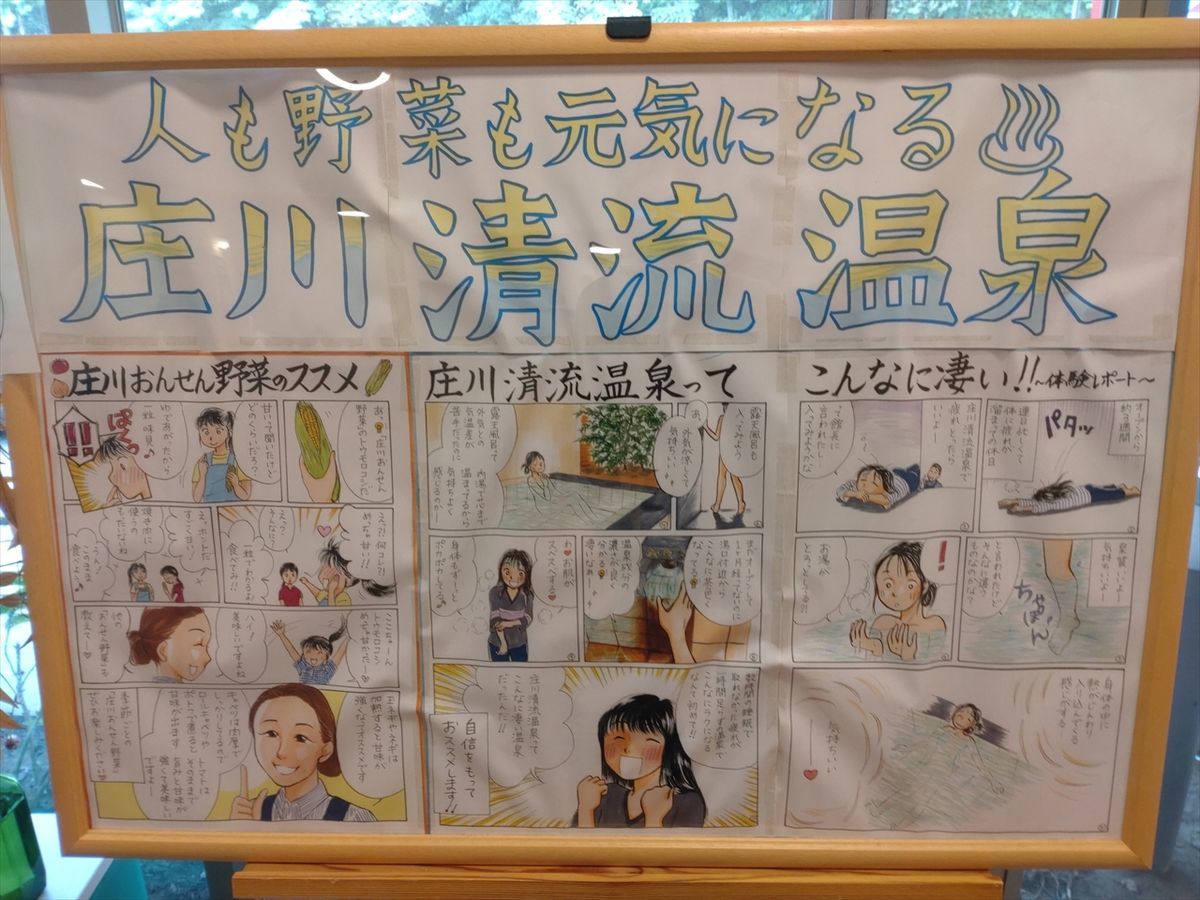 人も野菜も元気になる♨
庄川清流温泉
こんなに凄い!!～体験レポート～
オープンから
約3週間
連日忙しくて
体に疲れが
溜まっての休日
パタッ
庄川清流温泉で
疲れとったら
いいよー
って館長に
言われたし
入ってみようかな
泉質いいよー
気持ちいいよー
と言われたけど
そんなに違う
ものなのかな?
ちゃぽん
!
お湯が
とろっとしてる?!
身体の中に
熱がじんわり
入り込んでくる
感じがする
気持ちいい
庄川清流温泉って
露天風呂も
入ってみよう
あ
外気が涼しくて
気持ちいい
露天風呂って
外気との
気温差が
苦手だったのに
内湯で芯まで
温まってるから
気持ちよく
感じるのかー
まだオープンして
1ヶ月経ってないのに
湯口付近から
こんなに茶色く
なってる
温泉成分の
濃さが良く
分かる
凄いなぁ
わ お肌が
スベスベする
身体もずーっと
ポカポカしてる
数時間の睡眠で
取れなかった疲れが
一時間足らずの温泉で
こんなにラクになる
なんて初めて!!
庄川清流温泉って
こんなに凄い温泉
だったんだ!!
自信をもって
おススメします!!
庄川おんせん野菜のススメ
あっ「庄川おんせん
野菜」のトウモロコシだ
甘いって聞いたけど
どのくらいだろ?
ゆであがったから
一粒味見♪
ぱくっ
!!
えっ?! 何コレ?!
めっちゃ甘い!!
えっ?
そんなに?
一粒でわかるよ
食べてみ!!
え、ホントだ
すごく甘い!
焼き肉に
使うの
もったいないね
うん!
このまま
食べよっ♪
ここちゃーん
トウモロコシ
めちゃ甘かったー
ハイ!
美味しいですよね
他の
「おんせん野菜」も
教えてー
玉ネギやネギは
加熱すると甘味が
強くなってオススメです
キャベツは肉厚で
しっかりしてるので
ロールキャベツや
ポトフで煮ると
甘味が出ます
トマトは
そのままで
旨みと甘味が
強くて美味しい
ですよー
季節ごとの
「庄川おんせん野菜」
ぜひお楽しみください